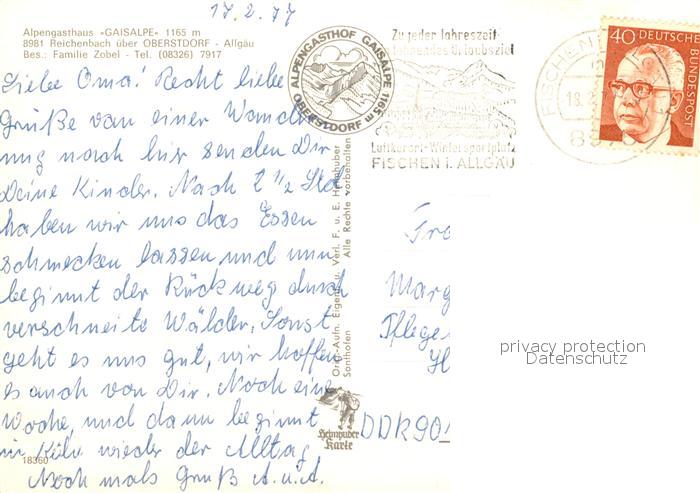 17.2.77
Alpengasthaus «GAISALPE» 1165 m
8981 Reichenbach über OBERSTDORF - Allgäu
Bes.: Familie Zobel - Tel. (08326) 7917
Liebe Oma! Recht liebe
Grüße von einer Wande-
rung nach hier senden Dir
Deine Kinder. Nach 2 1/2 Std
haben wir uns das Essen
schmecken lassen und nun
beginnt der Rückweg durch
verschneite Wälder. Sonst
geht es uns gut, wir hoffen
es auch von Dir. Noch eine
Woche, und dann beginnt
in Köln wieder der Alltag.
Nochmals Gruß A. u. A.
18360
ALPENGASTHOF GAISALPE 1165 m
OBERSTDORF
Zu jeder Jahreszeit
lohnendes Urlaubsziel
Luftkurort-Wintersportplatz
FISCHEN i. ALLGÄU
FISCHEN
18.2
40 DEUTSCHE
BUNDESPOST
Orig.-Aufn. Eigentum u. Verl. F. u. E. Heimhuber
Sonthofen Alle Rechte vorbehalten
Heimhuber
Karte
Marg
Pflege
DDR 90
privacy protection
Datenschutz